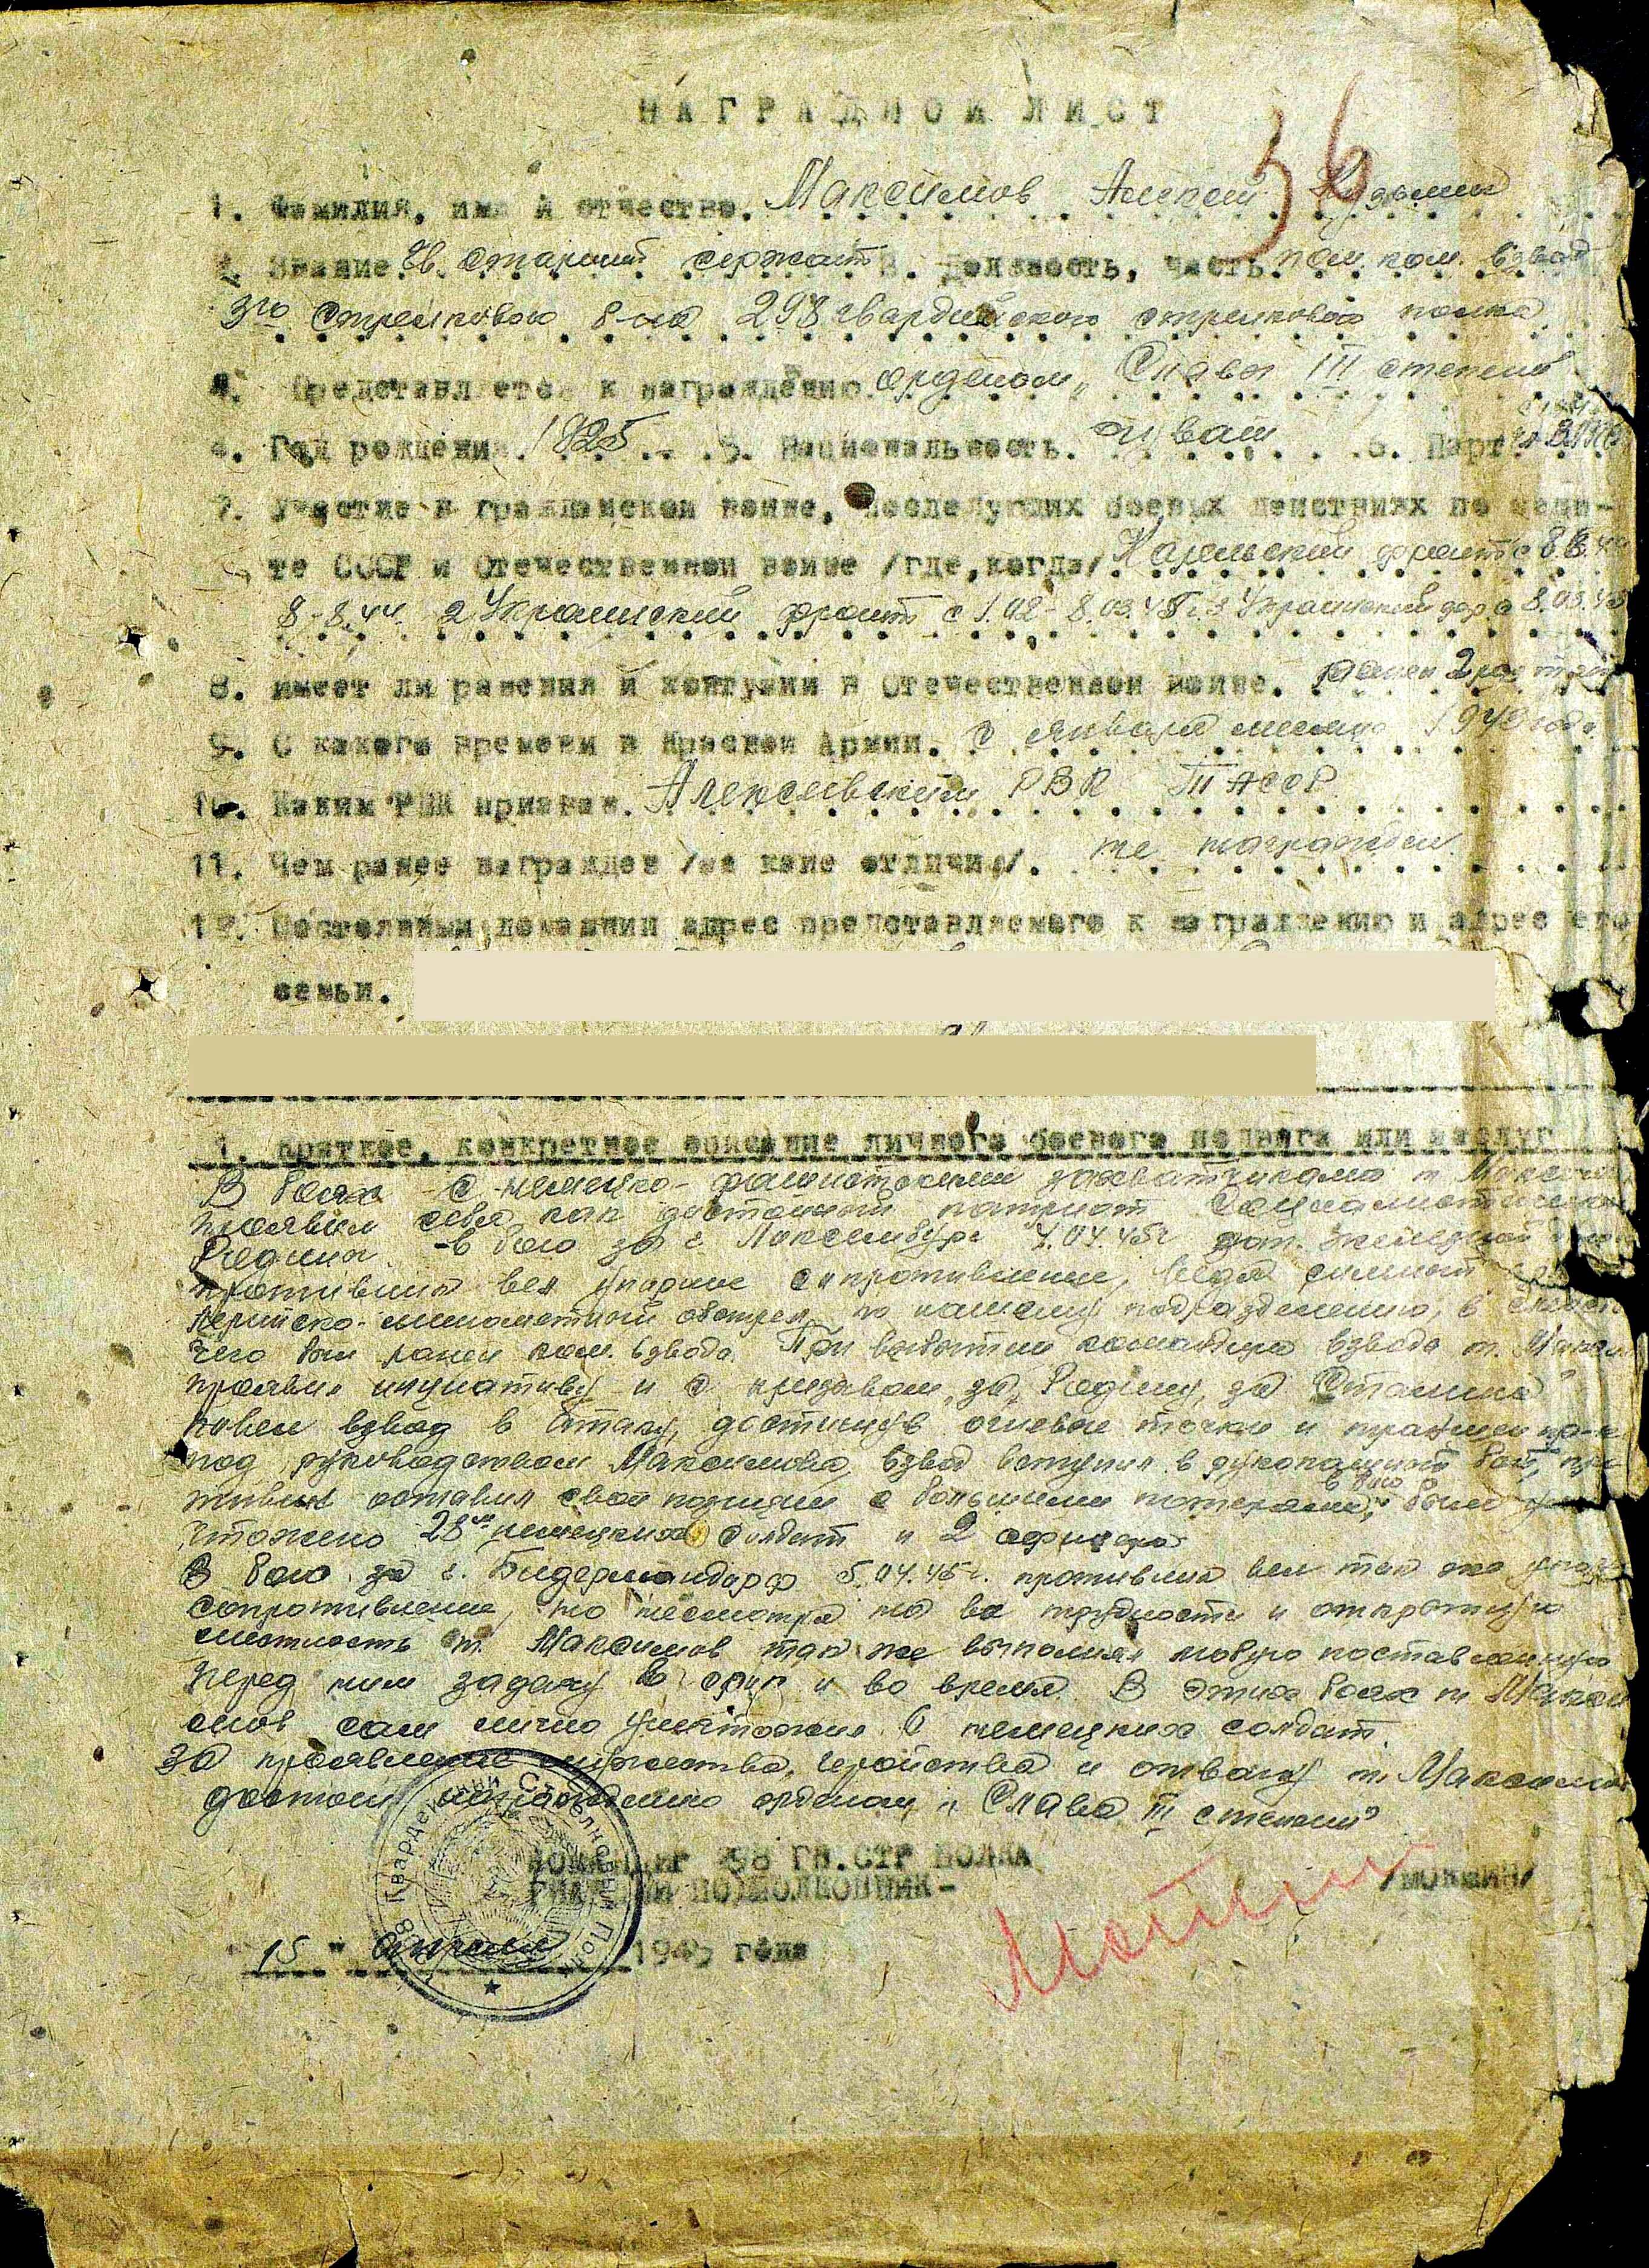 НАГРАДНОЙ ЛИСТ
36
1. Фамилия, имя и отчество. Максимов Алексей Кузьмич
2. Звание. Гв. старший сержант 3. Должность, часть. пом. ком. взвода
3го стрелкового б-на 298 гвардейского стрелкового полка
Представляется к награждению орденом „Слава III степени
4. Год рождения. 1925 5. Национальность. чуваш 6. Парт.
7. Участие в гражданской войне, последующих боевых действиях по защи-
те СССР и Отечественной войне /где, когда/. Карельский фронт с
8-8.44. 2 Украинский фронт с 1.02-8.03.45г. 3 Украинский фр. с 8.03.45
8. имеет ли ранения и контузии в Отечественной войне. ранен 2
9. С какого времени в Красной Армии. с января месяца 1943 года
10. Каким РВК призван. Алексеевским РВК ТАССР.
11. Чем ранее награжден /за какие отличия/. не награжден
12. Постоянный домашний адрес представляемого к награждению и адрес его
семьи.
1. Краткое, конкретное описание личного боевого подвига или заслуг
В боях с немецко-фашистскими захватчиками т.
проявил себя как достойный патриот
Родины. в бою за с. 04.45г
противник вел упорное сопротивление, ведя сильный
лерийско-минометный обстрел по нашему подразделению, в
чего был ранен ком. взвода. При выбытии командира взвода т.
проявил инициативу и с призывом „за Родину, за Сталина"
повел взвод в атаку, достигнув огневые точки и траншеи пр-к
под руководством Максимова, взвод вступил в рукопашный бой,
тивник оставил свои позиции с большими потерями, в бою было
чтожено 28 немецких солдат и 2 офицера
В бою за с. Бидермандорф 5.04.45г. противник вел так же
сопротивление, но несмотря на все трудности и открытую
местность т. Максимов так же выполнял любую поставленную
перед ним задачу в срок и во время. В этих боях т Макси
мов сам лично уничтожил 6 немецких солдат.
За проявление мужества, геройства и отвагу т. Максимов
достоин награждению орденом „Слава III степени"
КОМАНДИР 298 ГВ.СТР ПОЛКА
ГВАРДИИ ПОДПОЛКОВНИК- /МОКШИН/
298 Гвардейский Стрелковый Полк
"15" апреля 1945 года